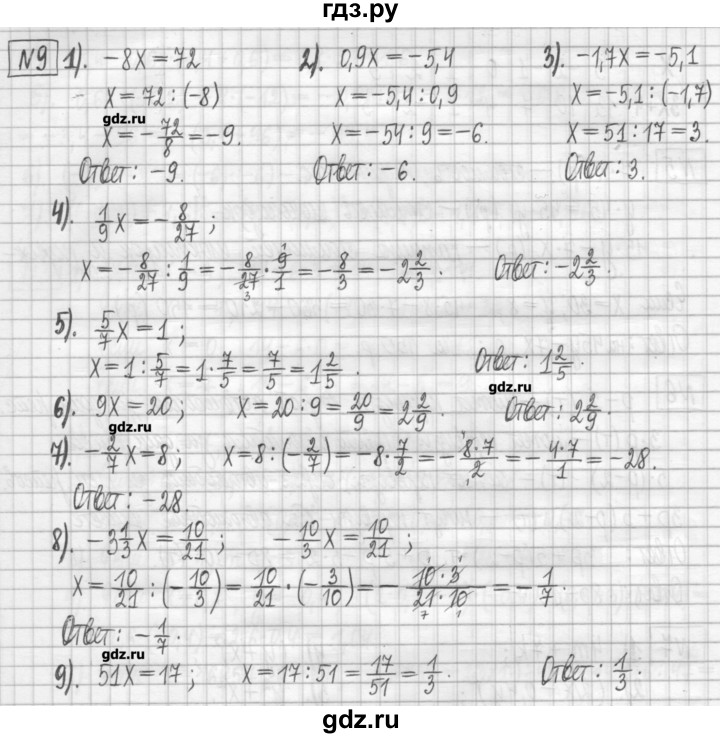 гдз.ру
№9 1). -8x = 72 2). 0,9x = -5,4 3). -1,7x = -5,1
x = 72 : (-8) x = -5,4 : 0,9 x = -5,1 : (-1,7)
gdz.ru
x = -72/8 = -9. x = -54 : 9 = -6. x = 51 : 17 = 3.
Ответ: -9. Ответ: -6. Ответ: 3.
4). 1/9 x = -8/27 ;
x = -8/27 : 1/9 = -8/27 · 9/1 = -8/3 = -2 2/3 . Ответ: -2 2/3 .
5). 5/7 x = 1 ;
x = 1 : 5/7 = 1 · 7/5 = 7/5 = 1 2/5 . Ответ: 1 2/5 .
gdz.ru
6). 9x = 20 ; x = 20 : 9 = 20/9 = 2 2/9 . Ответ: 2 2/9 .
gdz.ru
7). -2/7 x = 8 ; x = 8 : (-2/7) = -8 · 7/2 = -8·7/2 = -4·7/1 = -28.
Ответ: -28.
8). -3 1/3 x = 10/21 ; -10/3 x = 10/21 ;
x = 10/21 : (-10/3) = 10/21 · (-3/10) = -10·3/21·10 = -1/7 .
Ответ: -1/7 .
gdz.ru
9). 51x = 17 ; x = 17 : 51 = 17/51 = 1/3 . Ответ: 1/3 .
gdz.ru